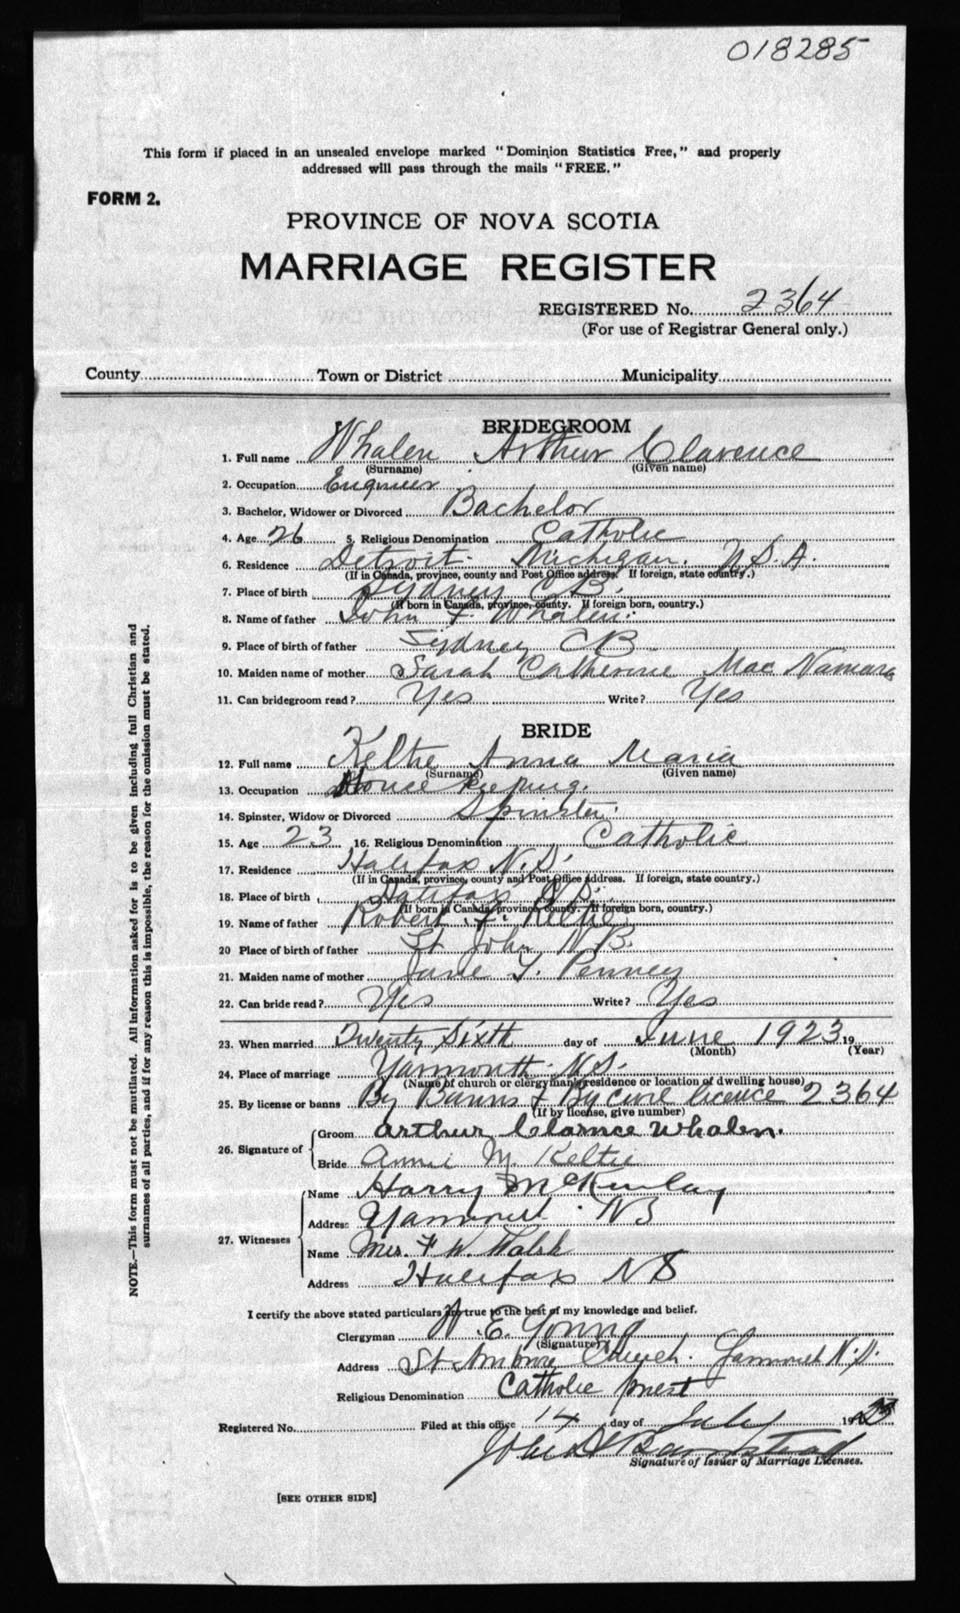 018285
This form if placed in an unsealed envelope marked "Dominion Statistics Free," and properly
addressed will pass through the mails "FREE."
FORM 2.
PROVINCE OF NOVA SCOTIA
MARRIAGE REGISTER
REGISTERED No. 2364
(For use of Registrar General only.)
County Town or District Municipality
BRIDEGROOM
1. Full name Whalen Arthur Clarence
(Surname) (Given name)
2. Occupation Engineer
3. Bachelor, Widower or Divorced Bachelor
4. Age 26 5. Religious Denomination Catholic
6. Residence Detroit Michigan. U.S.A.
(If in Canada, province, county and Post Office address. If foreign, state country.)
7. Place of birth Sydney C B.
(If born in Canada, province, county. If foreign born, country.)
8. Name of father John F Whalen.
9. Place of birth of father Sydney CB.
10. Maiden name of mother Sarah Catherine Mac Namara
11. Can bridegroom read? Yes Write? Yes
BRIDE
12. Full name Keltie Anna Maria
(Surname) (Given name)
13. Occupation House keeping.
14. Spinster, Widow or Divorced Spinster.
15. Age 23 16. Religious Denomination Catholic
17. Residence Halifax N.S.
(If in Canada, province, county and Post Office address. If foreign, state country.)
18. Place of birth Halifax N.S.
(If born in Canada, province, county. If foreign born, country.)
19. Name of father Robert Keltie
20 Place of birth of father St John N.B.
21. Maiden name of mother Jane Penney
22. Can bride read? Yes Write? Yes
23. When married Twenty Sixth day of June 1923 19
(Month) (Year)
24. Place of marriage Yarmouth N.S.
(Name of church or clergyman's residence or location of dwelling house)
25. By license or banns By Banns & By Civil licence 2364
(If by license, give number)
26. Signature of Groom Arthur Clarnce Whalen.
Bride Annie M. Keltie
27. Witnesses Name Harry McKinlay
Address Yarmouth. NS
Name Mrs. F W. Walsh
Address Halifax NS
I certify the above stated particulars are true to the best of my knowledge and belief.
Clergyman W. E. Young
(Signature)
Address St Ambrose Church. Yarmouth N.S.
Religious Denomination Catholic priest
Registered No. Filed at this office 14 day of July 1923
John Barnstead
Signature of Issuer of Marriage Licenses.
[SEE OTHER SIDE]
NOTE.—This form must not be mutilated. All information asked for is to be given including full Christian and
surnames of all parties, and if for any reason this is impossible, the reason for the omission must be stated.